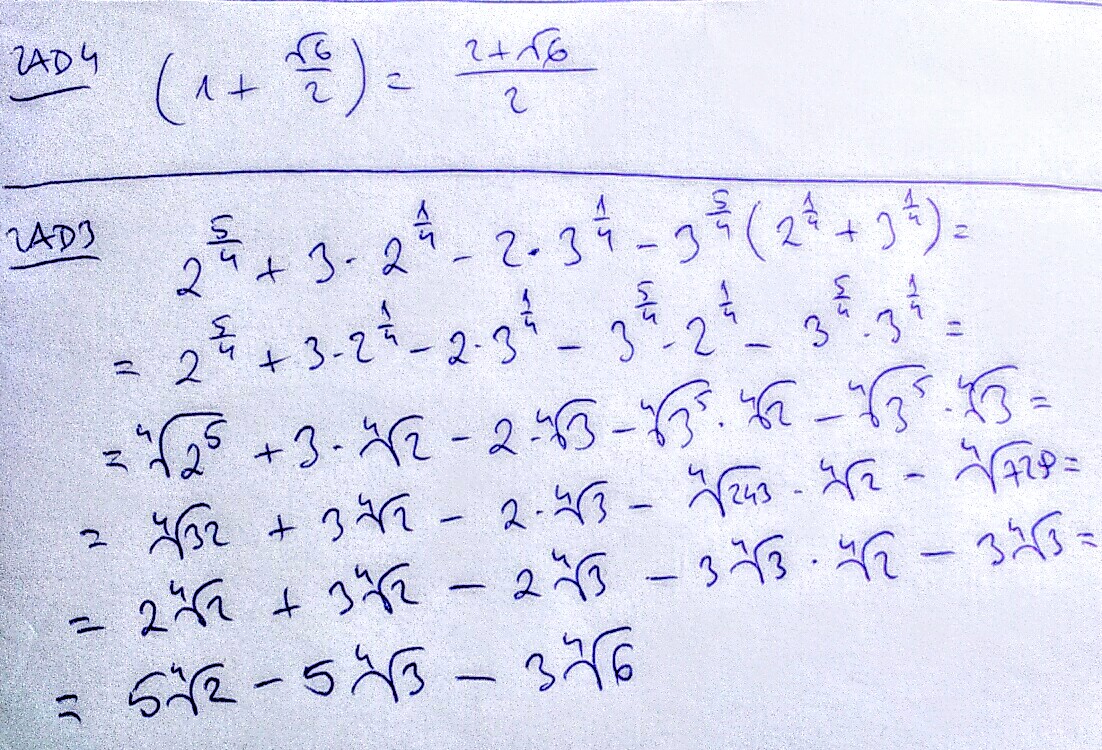 ZAD4 (1 + √6/2) = (2+√6)/2
ZAD3 2^(5/4) + 3 · 2^(1/4) - 2 · 3^(1/4) - 3^(5/4) (2^(1/4) + 3^(1/4)) =
= 2^(5/4) + 3 · 2^(1/4) - 2 · 3^(1/4) - 3^(5/4) · 2^(1/4) - 3^(5/4) · 3^(1/4) =
= ⁴√2⁵ + 3 · ⁴√2 - 2 · ⁴√3 - ⁴√3⁵ · ⁴√2 - ⁴√3⁵ · ⁴√3 =
= ⁴√32 + 3⁴√2 - 2 · ⁴√3 - ⁴√243 · ⁴√2 - ⁴√729 =
= 2⁴√2 + 3⁴√2 - 2⁴√3 - 3⁴√3 · ⁴√2 - 3⁴√3 =
= 5⁴√2 - 5⁴√3 - 3⁴√6